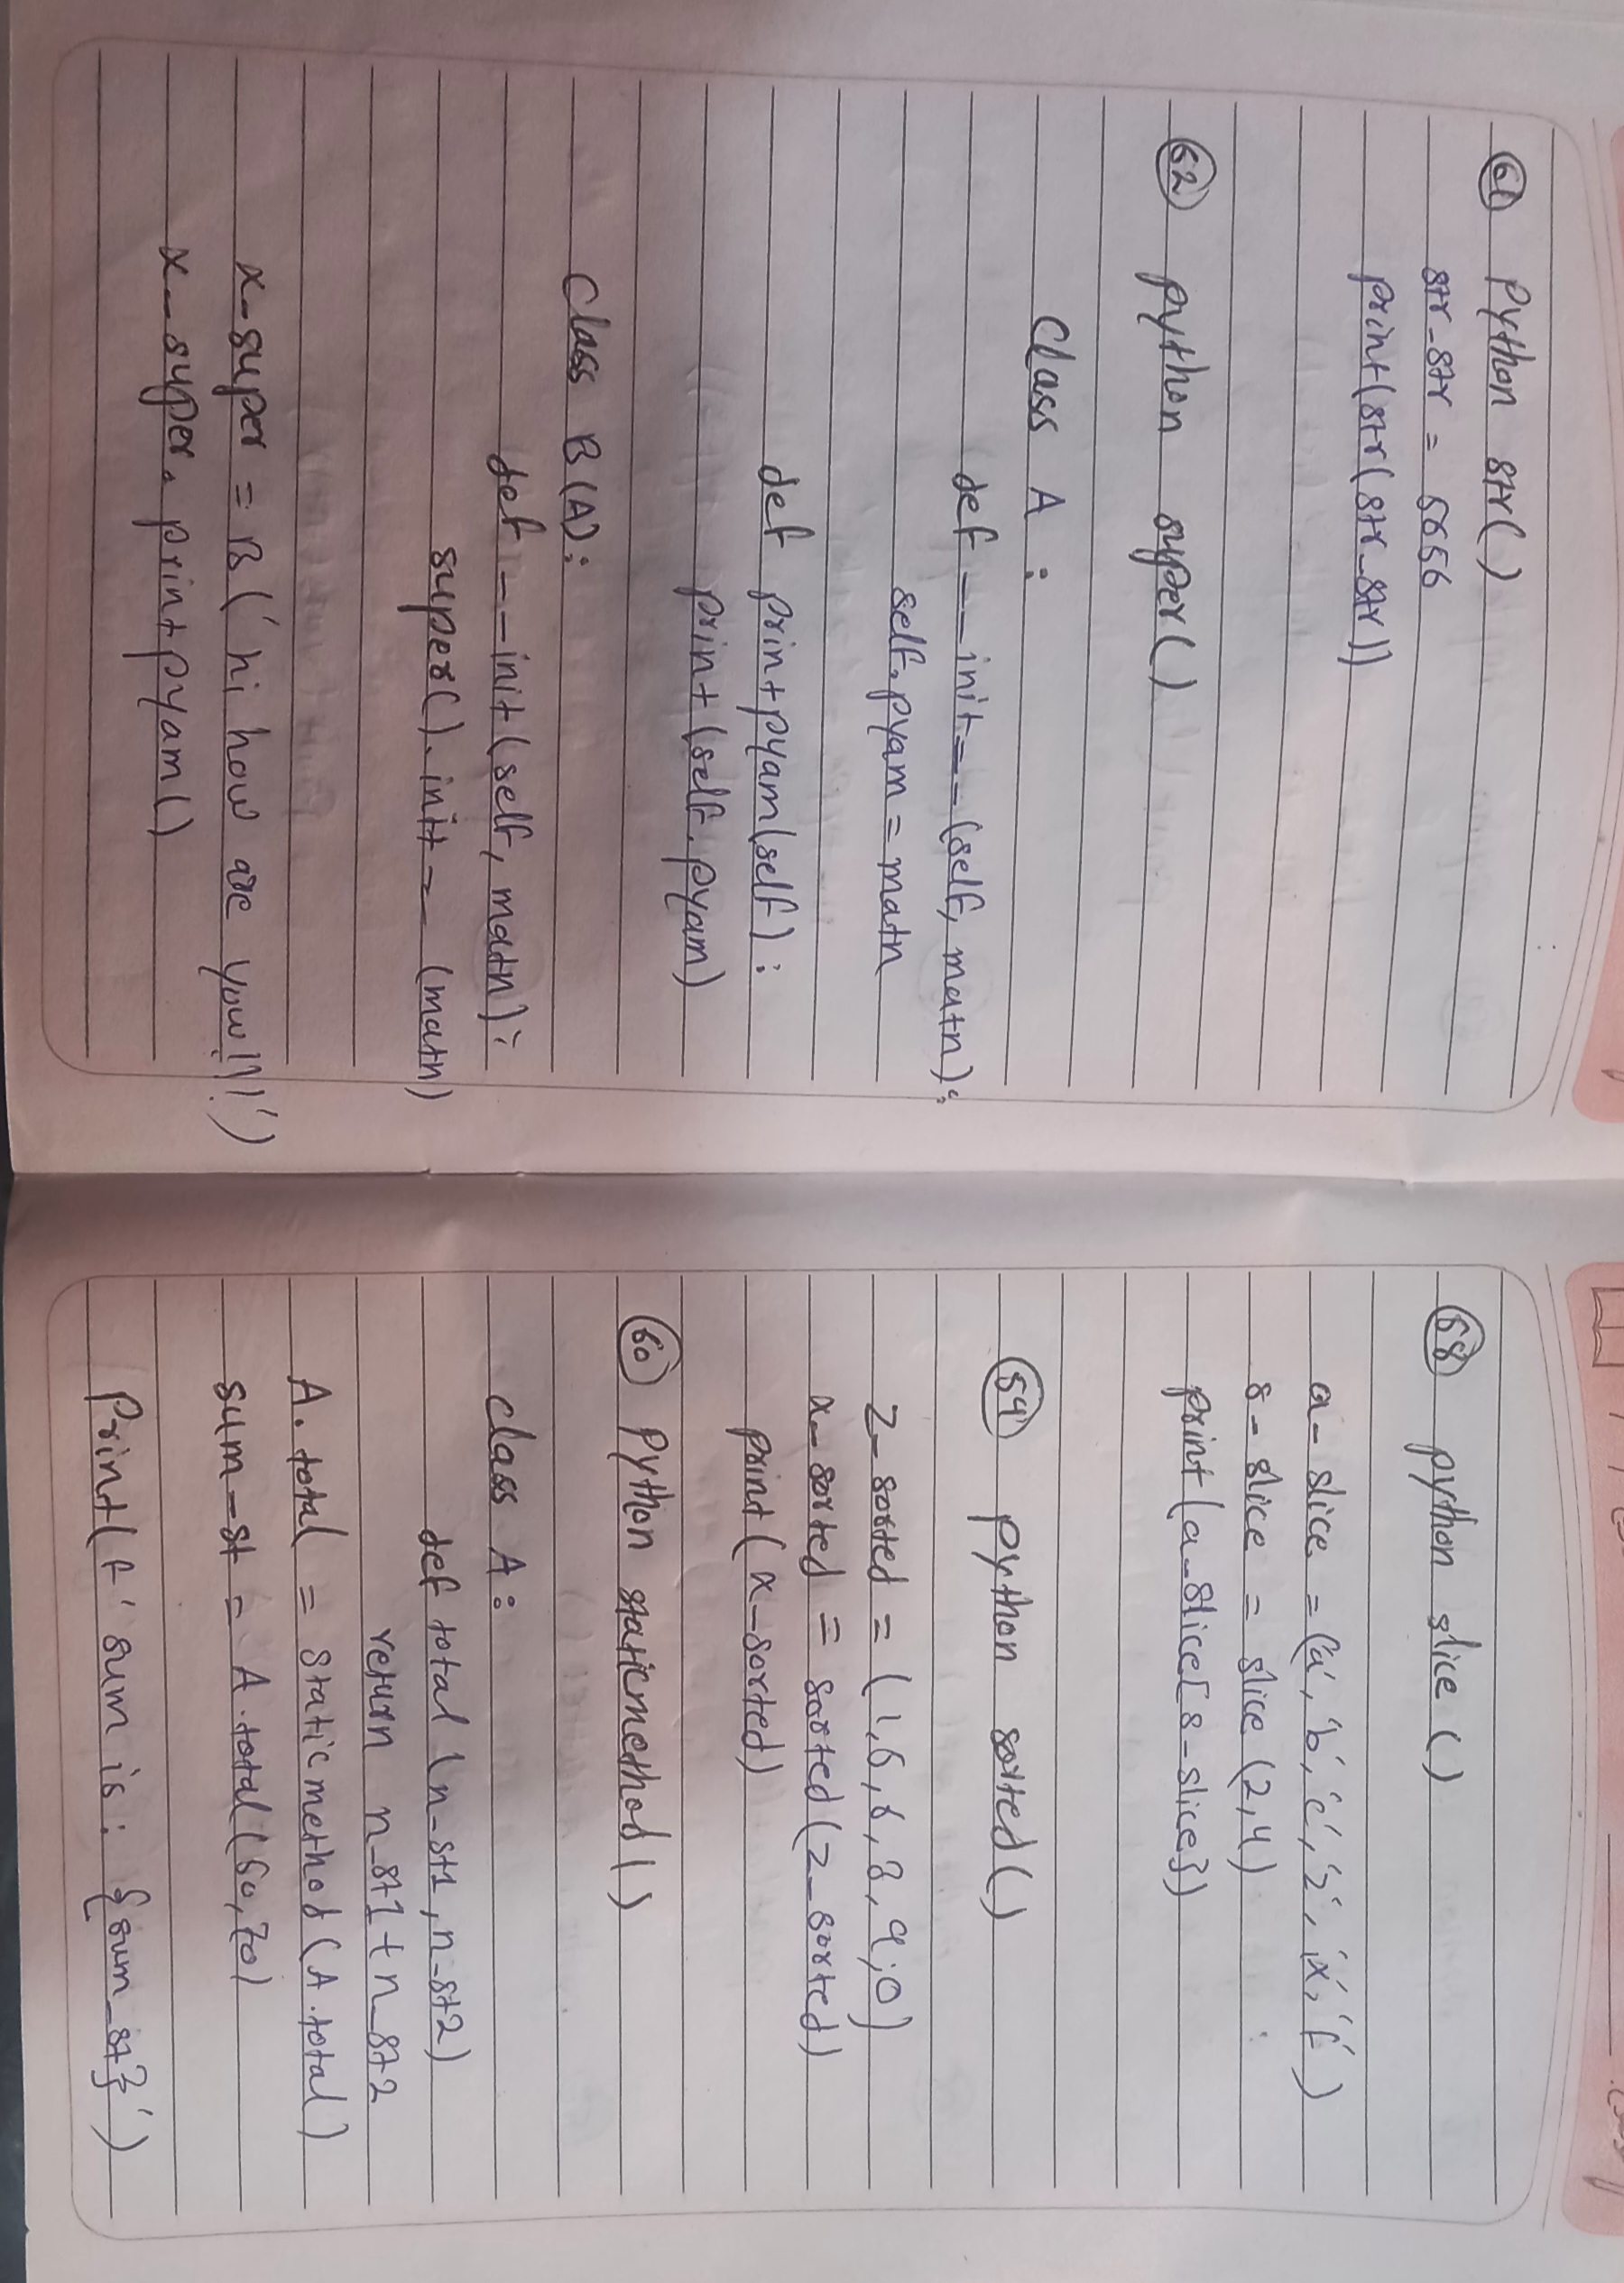 61 Python str()
str_str = 5556
print(str(str_str))
62 python super()
Class A :
def __init__(self, matn):
self.pyam = matn
def printpyam(self):
print(self.pyam)
Class B(A):
def __init(self, matn):
super().init__(matn)
x_super = B('hi how are you!!!')
x_super.printpyam()
58 python slice()
a_slice = ('a', 'b', 'c', 'z', 'x', 'f')
s_slice = slice(2,4)
print(a_slice[s_slice})
59 python sorted()
z_sorted = (1,5,6,3,9,0)
x_sorted = sorted(z_sorted)
print(x_sorted)
60 Python staticmethod()
class A:
def total(n_st1, n_st2)
return n_st1 + n_st2
A.total = staticmethod(A.total)
sum_st = A.total(60,70)
Print(f'sum is: {sum_st}')